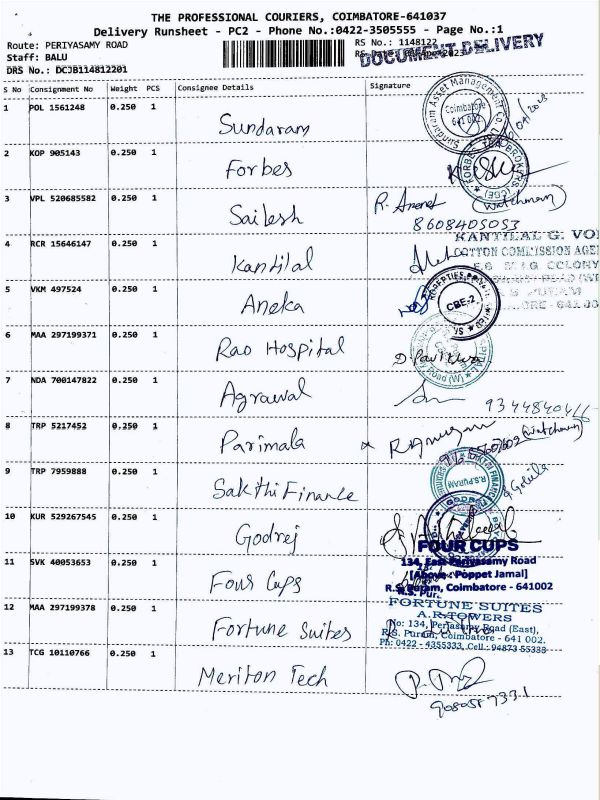 THE PROFESSIONAL COURIERS, COIMBATORE-641037
Delivery Runsheet - PC2 - Phone No.:0422-3505555 - Page No.:1
Route: PERIYASAMY ROAD
RS No.: 1148122
Staff: BALU
DOCUMENT DELIVERY
DRS No.: DCJB114812201
S No Consignment No Weight PCS Consignee Details Signature
1 POL 1561248 0.250 1 Sundaram
Sundaram Asset Management Co.
Coimbatore
641 002
2 KOP 905143 0.250 1 Forbes
3 VPL 520685582 0.250 1 Sailesh
(Watchman)
8608405053
4 RCR 15646147 0.250 1 Kantilal
KANTILAL G.
COTTON COMMISSION
COLONY
5 VKM 497524 0.250 1 Aneka
CBE-2
6 MAA 297199371 0.250 1 Rao Hospital
7 NDA 700147822 0.250 1 Agrawal
8 TRP 5217452 0.250 1 Parimala
(Watchman)
9 TRP 7959888 0.250 1 Sakthi Finance
R.S.PURAM
10 KUR 529267545 0.250 1 Godrej
11 SVK 40053653 0.250 1 Four Cups
FOUR CUPS
134, East Periyasamy Road
[Above : Poppet Jamal]
R.S. Puram, Coimbatore - 641002
12 MAA 297199378 0.250 1 Fortune Suites
FORTUNE SUITES
A.R.TOWERS
No: 134, Periasamy Road (East),
R.S. Puram, Coimbatore - 641 002.
Ph: 0422 - 4355333, Cell : 94873 55333
13 TCG 10110766 0.250 1 Meriton Tech